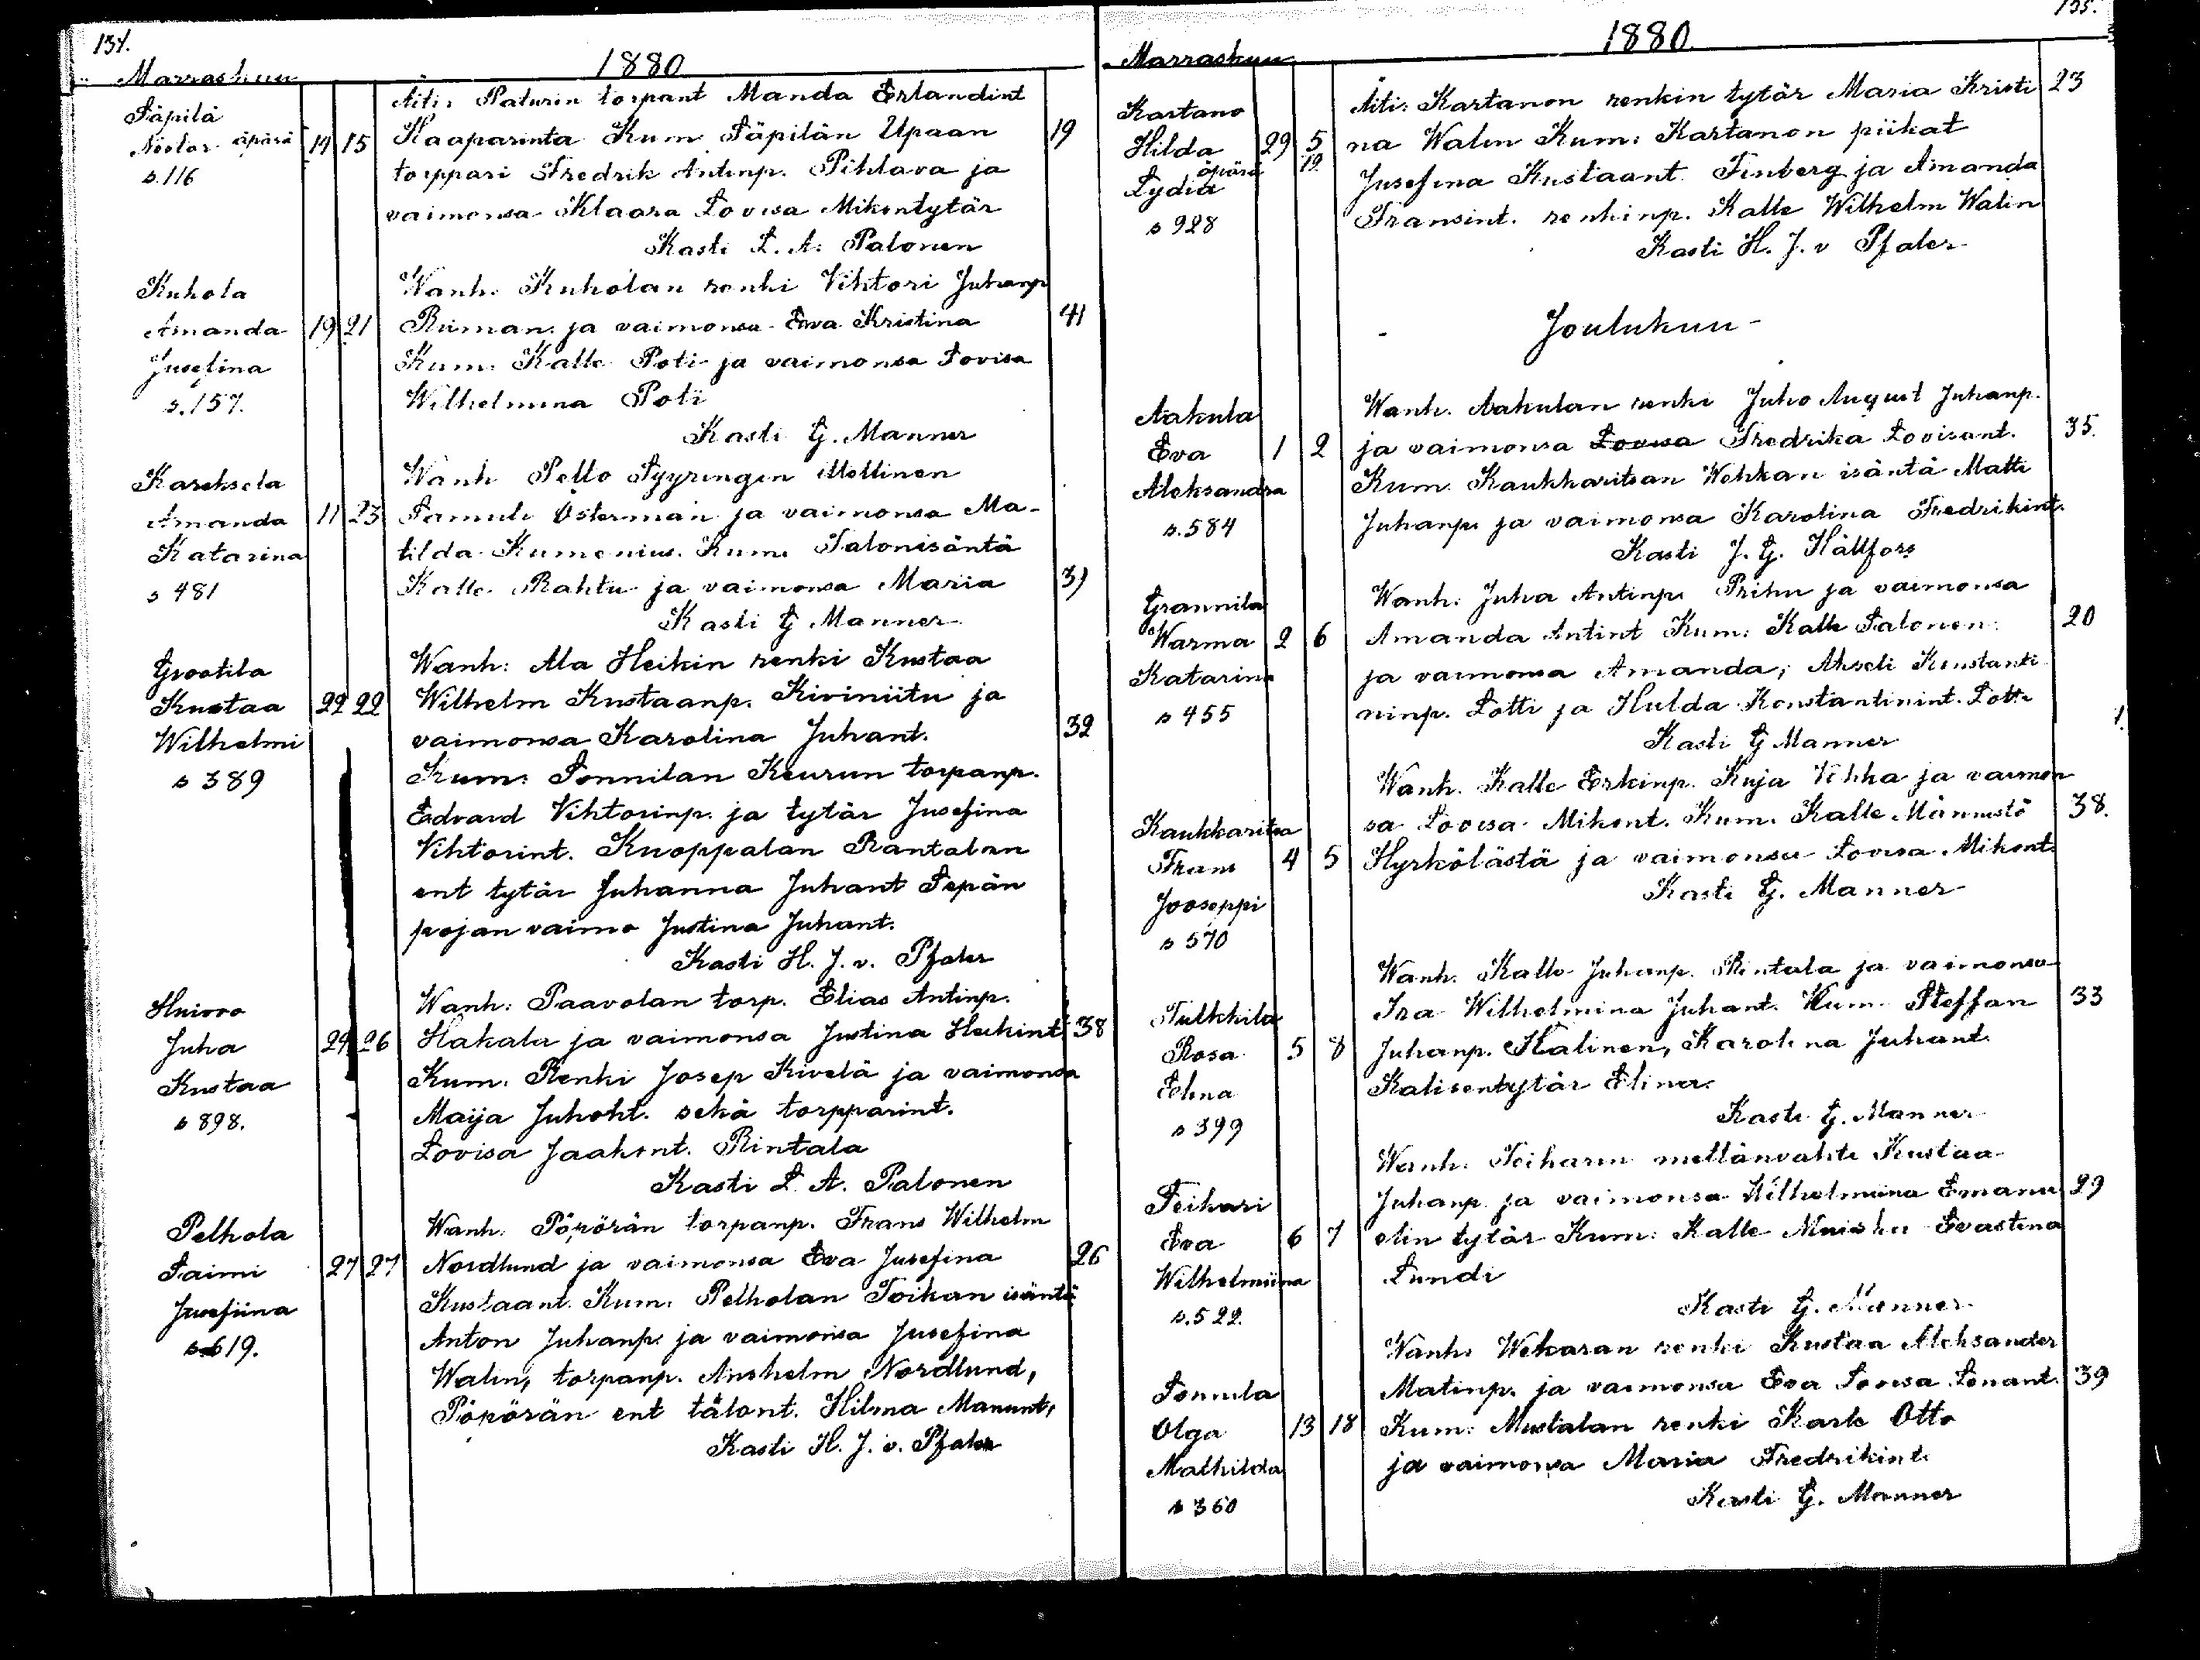 134.
1880
Marraskuu
Säpilä
Nestor äpärä 14 15
s. 116
Äiti: Paturin torpant Manda Erlandint
Haaparinta Kum: Säpilän Upaan 19
torppari Fredrik Antinp. Pihlava ja
vaimonsa Klaara Lovisa Mikontytär
Kasti L. A. Palonen
Kuhola
Amanda 19 21
Jusefina
s. 157.
Wanh: Kuholan renki Vihtori Juhanp
Riiman ja vaimonsa Eva Kristina 41
Kum: Kalle Poti ja vaimonsa Lovisa
Wilhelmina Poti
Kasti G. Manner
Kareksela
Amanda 11 23
Katarina
s 481
Wanh Pello Syyringin ittellinen
Samuli Österman ja vaimonsa Ma-
tilda Kumenius. Kum: Talonisäntä
Kalle Rahtu ja vaimonsa Maria 31
Kasti G Manner
Grootila
Kustaa 22 22
Wilhelmi
s 389
Wanh: Ala Heikin renki Kustaa
Wilhelm Kustaanp. Kiviniitu ja
vaimonsa Karolina Juhant. 32
Kum: Sonnilan Keurun torpanp.
Edvard Vihtorinp. ja tytär Jusefina
Vihtorint. Kuoppalan Rantalan
ent tytär Juhanna Juhant Sepän
pojan vaimo Justina Juhant.
Kasti H. J. v. Pfaler
Huiovo
Juha 24 26
Kustaa
s 898.
Wanh: Paavolan torp. Elias Antinp.
Hakala ja vaimonsa Justina Heikint 38
Kum: Renki Josep Kivelä ja vaimonsa
Maija Juhoht. sekä torpparint.
Lovisa Jaakont. Rintala
Kasti L. A. Palonen
Pelhola
Saimi 27 27
Jusefiina
s 619.
Wanh: Pöpörän torpanp. Frans Wilhelm
Nordlund ja vaimonsa Eva Jusefina 26
Kustaant. Kum: Pelholan Toikan isäntä
Anton Juhanp. ja vaimonsa Jusefina
Walin, torpanp. Anshelm Nordlund,
Pöpörän ent talont. Hilma Manunt,
Kasti H. J. v. Pfaler
135.
1880
Marraskuu
Kartano
Hilda 29 5
äpärä 12.
Lydia
s 928
Äiti: Kartanon renkin tytär Maria Kristi 23
na Walin Kum: Kartanon piikat
Jusefina Kustaant. Finberg ja Amanda
Fransint. renkinp. Kalle Wilhelm Walin
Kasti H. J. v Pfaler
Joulukuu
Aakula
Eva 1 2
Aleksandra
s. 584
Wanh. Aakulan renki Juho August Juhanp.
ja vaimonsa Lovisa Fredrika Lovisant. 35.
Kum. Kaukkaritsan Wehkan isäntä Matti
Juhanp. ja vaimonsa Karolina Fredrikint.
Kasti J. G. Hällfors
Grannila
Warma 2 6
Katarina
s 455
Wanh: Juha Antinp. Prihu ja vaimonsa
Amanda Antint Kum: Kalle Salonen 20
ja vaimonsa Amanda, Akseli Konstanti
ninp. Lotti ja Hulda Konstantinint. Lotti
Kasti G Manner
Kaukkaritsa
Frans 4 5
Jooseppi
s 570
Wanh. Kalle Erkinp. Kuja Vehka ja vaimon
sa Lovisa Mikont. Kum. Kalle Männistö 38.
Hyrkölästä ja vaimonsa Lovisa Mikont.
Kasti G. Manner
Tulkkila
Rosa 5 8
Elina
s 399
Wanh. Kalle Juhanp. Rintala ja vaimonsa
Ira Wilhelmina Juhant. Kum. Steffan 33
Juhanp. Kalinen, Karolina Juhant.
Kalisentytär Elinen.
Kasti G. Manner
Teikari
Eva 6 7
Wilhelmiina
s. 522.
Wanh. Teikarin mettänvahti Kustaa
Juhanp ja vaimonsa Wilhelmiina Emanu 29
elin tytär Kum: Kalle Muisku Evastina
Lundi
Kasti G. Manner
Sonnila
Olga 13 18
Mathilda
s 360
Wanh: Wekaran renki Kustaa Aleksander
Matinp. ja vaimonsa Eva Lovisa Lonant. 39
Kum: Mustalan renki Karle Otto
ja vaimonsa Maria Fredrikint.
Kasti G. Manner